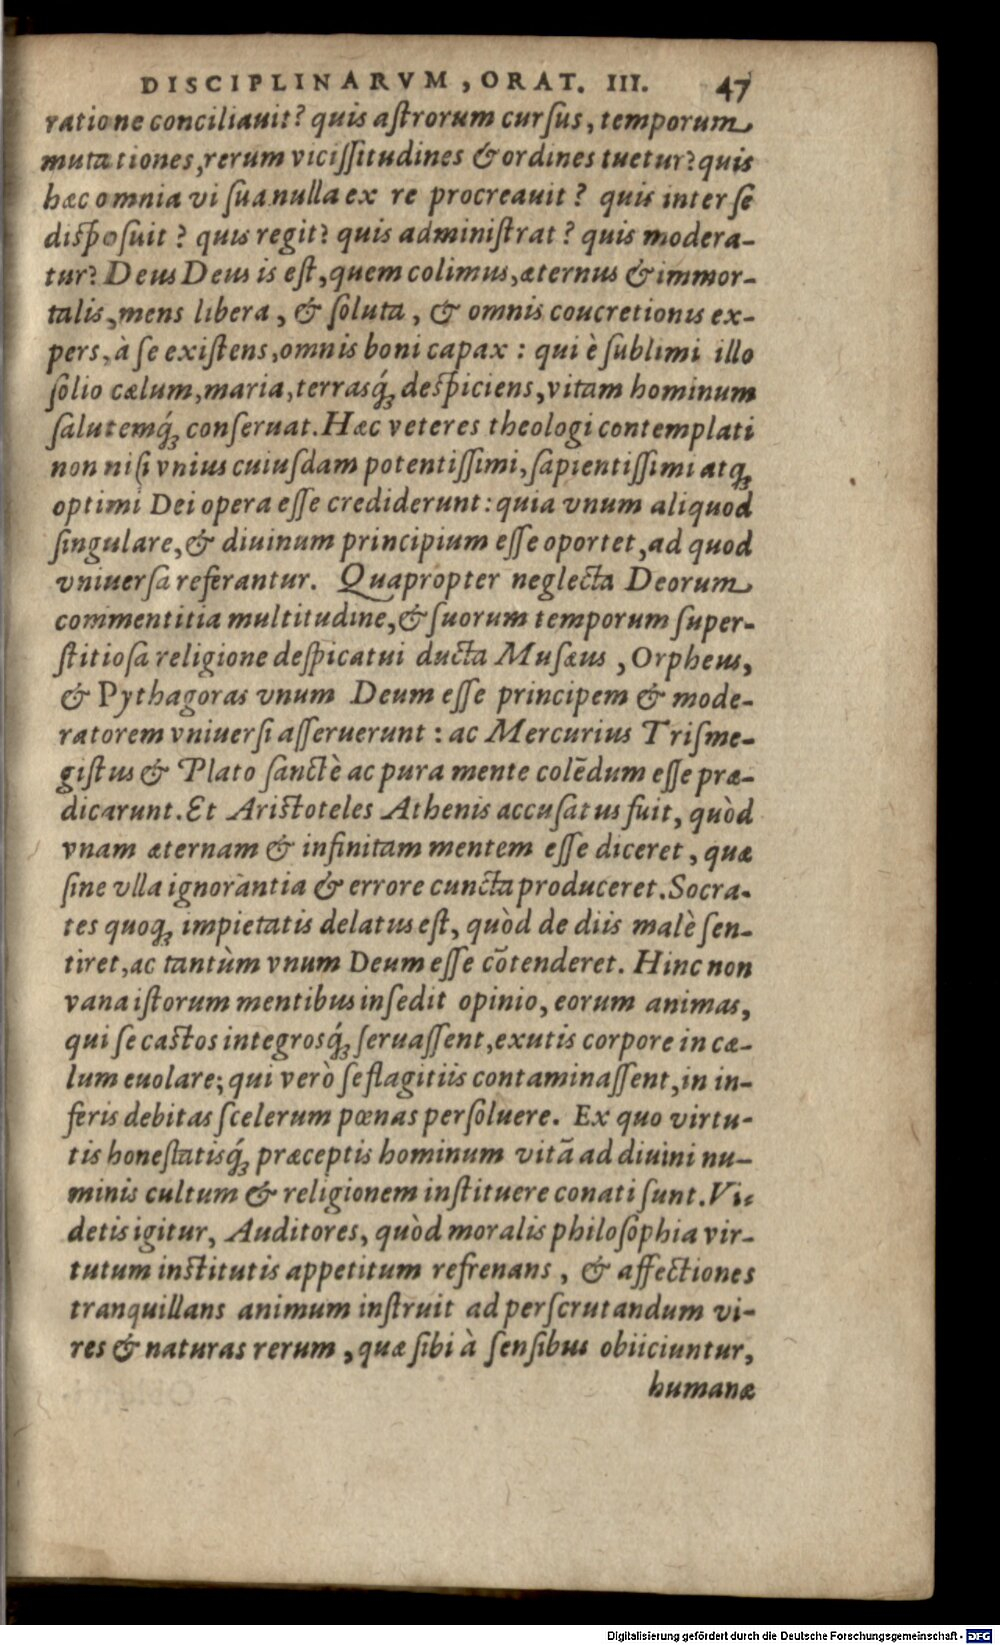 DISCIPLINARVM, ORAT. III. 47
ratione conciliauit? quis aſtrorum curſus, temporum
mutationes, rerum viciſſitudines & ordines tuetur? quis
hæc omnia vi ſua nulla ex re procreauit? quis inter ſe
diſpoſuit? quis regit? quis adminiſtrat? quis modera-
tur? Deus Deus is eſt, quem colimus, æternus & immor-
talis, mens libera, & ſoluta, & omnis coucretionis ex-
pers, à ſe exiſtens, omnis boni capax: qui è ſublimi illo
ſolio cælum, maria, terrasq́; deſpiciens, vitam hominum
ſalutemq́; conſeruat. Hæc veteres theologi contemplati
non niſi vnius cuiuſdam potentiſſimi, ſapientiſſimi atq;
optimi Dei opera eſſe crediderunt: quia vnum aliquod
ſingulare, & diuinum principium eſſe oportet, ad quod
vniuerſa referantur. Quapropter neglecta Deorum
commentitia multitudine, & ſuorum temporum ſuper-
ſtitioſa religione deſpicatui ducta Muſæus, Orpheus,
& Pythagoras vnum Deum eſſe principem & mode-
ratorem vniuerſi aſſeruerunt: ac Mercurius Triſme-
giſtus & Plato ſanctè ac pura mente colēdum eſſe præ-
dicarunt. Et Ariſtoteles Athenis accuſatus fuit, quòd
vnam æternam & infinitam mentem eſſe diceret, quæ
ſine vlla ignorantia & errore cuncta produceret. Socra-
tes quoq; impietatis delatus eſt, quòd de diis malè ſen-
tiret, ac tantùm vnum Deum eſſe cōtenderet. Hinc non
vana iſtorum mentibus inſedit opinio, eorum animas,
qui ſe caſtos integrosq́; ſeruaſſent, exutis corpore in cæ-
lum euolare; qui verò ſe flagitiis contaminaſſent, in in-
feris debitas ſcelerum pœnas perſoluere. Ex quo virtu-
tis honeſtatisq́; præceptis hominum vitā ad diuini nu-
minis cultum & religionem inſtituere conati ſunt. Vi-
detis igitur, Auditores, quòd moralis philoſophia vir-
tutum inſtitutis appetitum refrenans, & affectiones
tranquillans animum inſtruit ad perſcrutandum vi-
res & naturas rerum, quæ ſibi à ſenſibus obiiciuntur,
humanæ
Digitalisierung gefördert durch die Deutsche Forschungsgemeinschaft - DFG